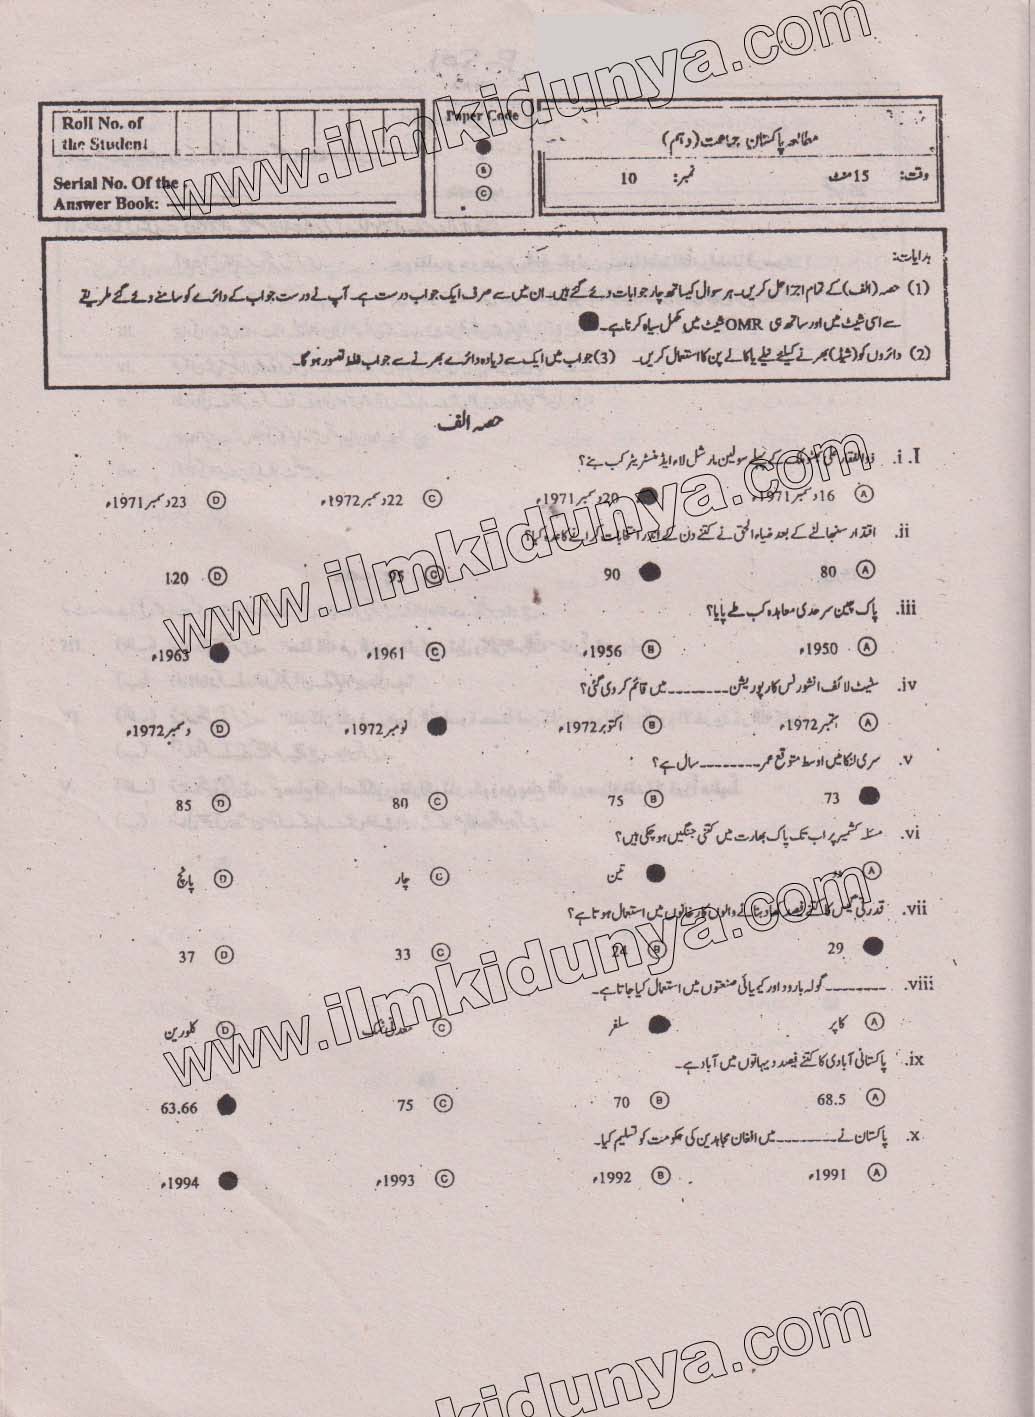 Roll No. of
the Student
Serial No. Of the
Answer Book:
Paper Code
B
C
مطالعہ پاکستان جماعت (دہم)
وقت: 15 منٹ نمبر: 10
ہدایات:
(1) حصہ (الف) کے تمام اجزا حل کریں۔ ہر سوال کیساتھ چار جوابات دئے گئے ہیں۔ ان میں سے صرف ایک جواب درست ہے۔ آپ نے درست جواب کے دائرے کو سامنے دئے گئے طریقے
سے اسی شیٹ میں اور ساتھ ہی OMR شیٹ میں مکمل سیاہ کرنا ہے۔
(2) دائروں کو (شیڈ) بھرنے کیلئے نیلے یا کالے پن کا استعمال کریں۔ (3) جواب میں ایک سے زیادہ دائرے بھرنے سے جواب غلط تصور ہوگا۔
حصہ الف
I. i. ذوالفقار علی بھٹو کے پہلے سولین مارشل لاء ایڈمنسٹریٹر کب بنے؟
A 16دسمبر 1971ء 20دسمبر 1971ء C 22دسمبر 1972ء D 23دسمبر 1971ء
ii. اقتدار سنبھالنے کے بعد ضیاء الحق نے کتنے دن کے اندر انتخابات کرانے کا وعدہ کیا؟
A 80 90 C 95 D 120
iii. پاک چین سرحدی معاہدہ کب طے پایا؟
A 1950ء B 1956ء C 1961ء 1963ء
iv. سٹیٹ لائف انشورنس کارپوریشن ــــــــ میں قائم کر دی گئی؟
A ستمبر 1972ء B اکتوبر 1972ء نومبر 1972ء D دسمبر 1972ء
v. سری لنکا میں اوسط متوقع عمر ــــــــ سال ہے؟
73 B 75 C 80 D 85
vi. مسئلہ کشمیر پر اب تک پاک بھارت میں کتنی جنگیں ہو چکی ہیں؟
A دو تین C چار D پانچ
vii. قدرتی گیس کا کتنے فیصد کھاد بنانے والوں کارخانوں میں استعمال ہوتا ہے؟
29 B 24 C 33 D 37
viii. ــــــــ گولہ بارود اور کیمیائی صنعتوں میں استعمال کیا جاتا ہے۔
A کاپر سلفر C معدنی نمک D کلورین
ix. پاکستانی آبادی کا کتنے فیصد دیہاتوں میں آباد ہے۔
A 68.5 B 70 C 75 63.66
x. پاکستان نے ــــــــ میں افغان مجاہدین کی حکومت کو تسلیم کیا۔
A 1991ء B 1992ء C 1993ء 1994ء
www.ilmkidunya.com
www.ilmkidunya.com
www.ilmkidunya.com
kidunya.com